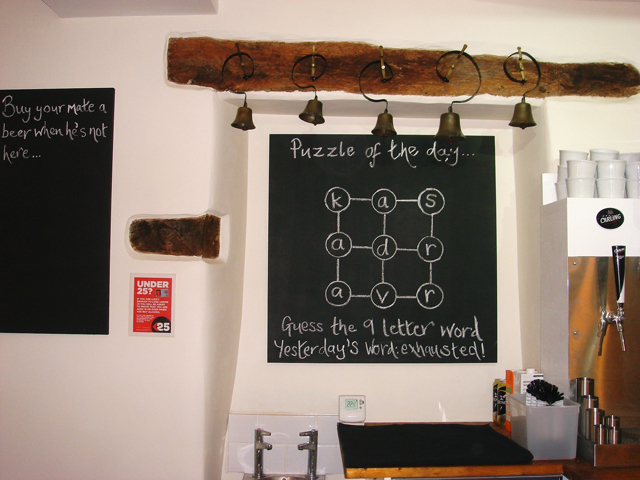 Buy your mate a
beer when he's not
here...
Puzzle of the day...
k a s
a d r
a v r
Guess the 9 letter word
Yesterday's word: exhausted!
UNDER
25?
25
CARLING